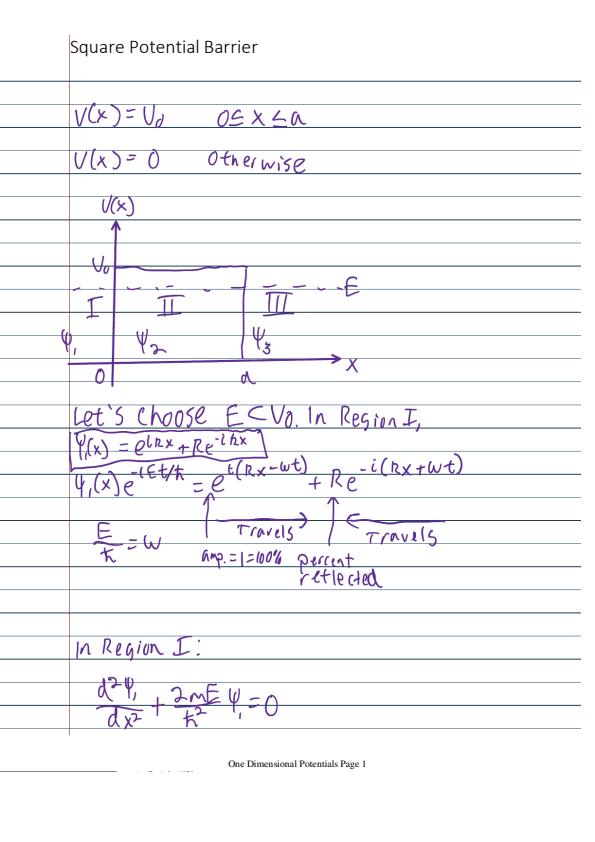 Square Potential Barrier
V(x) = V₀ 0 ≤ x ≤ a
V(x) = 0 Otherwise
V(x)
V₀
E
I II III
ψ₁ ψ₂ ψ₃
x
0 a
Let's choose E < V₀. In Region I,
ψ₁(x) = e^{ikx} + Re^{-ikx}
ψ₁(x)e^{-iEt/ħ} = e^{i(kx-ωt)} + Re^{-i(kx+ωt)}
E/ħ = ω
Travels Travels
amp. = 1 = 100% percent
reflected
In Region I:
d²ψ₁/dx² + 2mE/ħ² ψ₁ = 0
One Dimensional Potentials Page 1